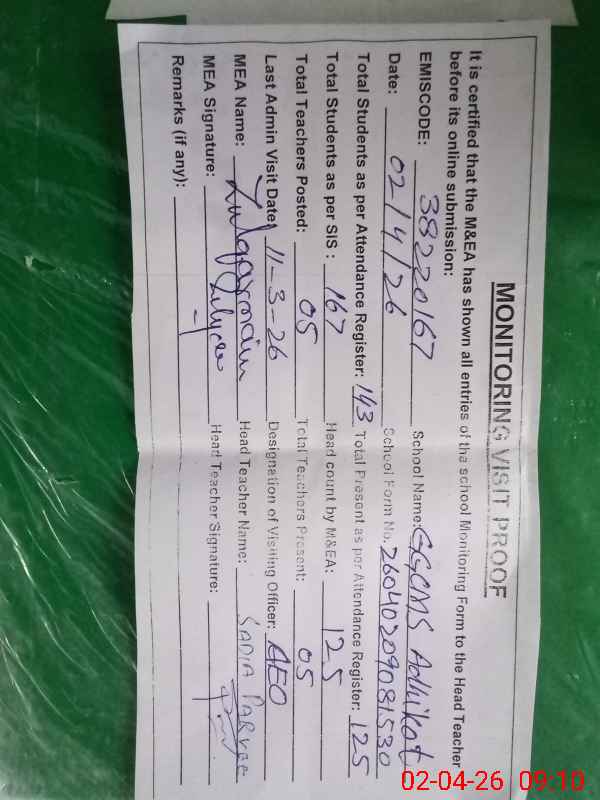 MONITORING VISIT PROOF
It is certified that the M&EA has shown all entries of the school Monitoring Form to the Head Teacher
before its online submission:
EMISCODE: 38220167 School Name: GGCMS Adhikot
Date: 02/4/26 School Form No. 26040209081530
Total Students as per Attendance Register: 143 Total Present as per Attendance Register: 125
Total Students as per SIS : 167 Head count by M&EA: 125
Total Teachers Posted: 05 Total Teachers Present: 05
Last Admin Visit Date: 11-3-26 Designation of Visiting Officer: AEO
MEA Name: Head Teacher Name: SADIA PARVEEN
MEA Signature: Head Teacher Signature:
Remarks (if any):
02-04-26 09:10